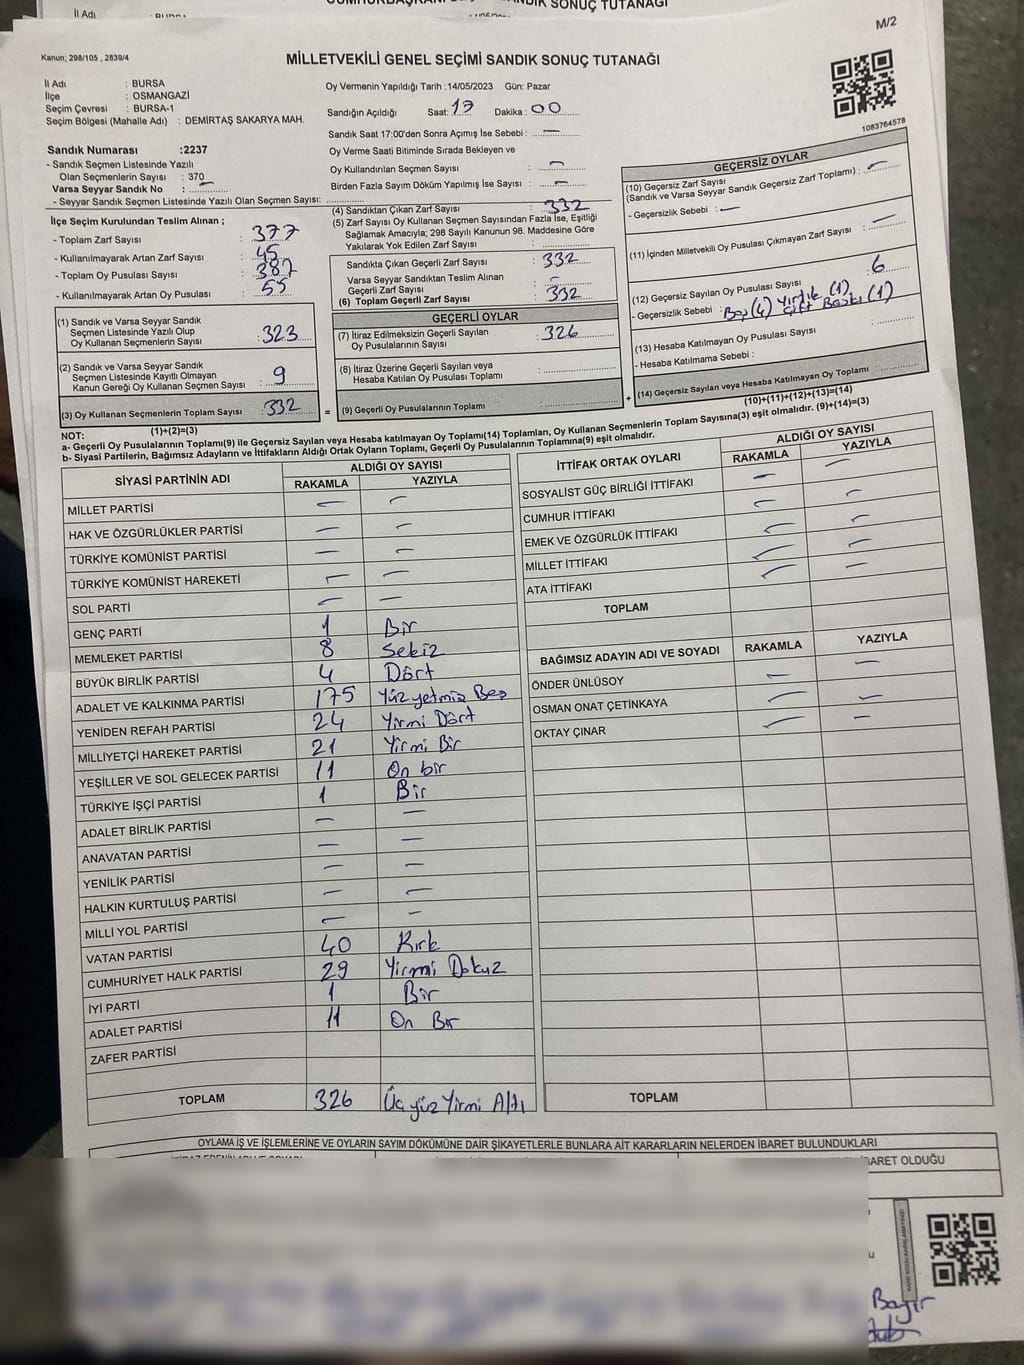 İl Adı
M/2
Kanun; 298/105 , 2839/4
MİLLETVEKİLİ GENEL SEÇİMİ SANDIK SONUÇ TUTANAĞI
İl Adı : BURSA
İlçe : OSMANGAZİ
Seçim Çevresi : BURSA-1
Seçim Bölgesi (Mahalle Adı) : DEMİRTAŞ SAKARYA MAH.
Oy Vermenin Yapıldığı Tarih :14/05/2023 Gün: Pazar
Sandığın Açıldığı Saat: 17 Dakika : 00
Sandık Saat 17:00'den Sonra Açımış İse Sebebi : —
Oy Verme Saati Bitiminde Sırada Bekleyen ve
Oy Kullandırılan Seçmen Sayısı : —
Birden Fazla Sayım Döküm Yapılmış İse Sayısı : —
1083764578
Sandık Numarası :2237
- Sandık Seçmen Listesinde Yazılı
Olan Seçmenlerin Sayısı : 370
Varsa Seyyar Sandık No : —
- Seyyar Sandık Seçmen Listesinde Yazılı Olan Seçmen Sayısı:
İlçe Seçim Kurulundan Teslim Alınan ;
- Toplam Zarf Sayısı : 377
- Kullanılmayarak Artan Zarf Sayısı : 45
- Toplam Oy Pusulası Sayısı : 387
- Kullanılmayarak Artan Oy Pusulası : 55
(1) Sandık ve Varsa Seyyar Sandık
Seçmen Listesinde Yazılı Olup
Oy Kullanan Seçmenlerin Sayısı : 323
(2) Sandık ve Varsa Seyyar Sandık
Seçmen Listesinde Kayıtlı Olmayan
Kanun Gereği Oy Kullanan Seçmen Sayısı : 9
(3) Oy Kullanan Seçmenlerin Toplam Sayısı : 332
(1)+(2)=(3)
(4) Sandıktan Çıkan Zarf Sayısı : 332
(5) Zarf Sayısı Oy Kullanan Seçmen Sayısından Fazla İse, Eşitliği
Sağlamak Amacıyla; 298 Sayılı Kanunun 98. Maddesine Göre
Yakılarak Yok Edilen Zarf Sayısı :
Sandıkta Çıkan Geçerli Zarf Sayısı : 332
Varsa Seyyar Sandıktan Teslim Alınan
Geçerli Zarf Sayısı : —
(6) Toplam Geçerli Zarf Sayısı : 332
GEÇERLİ OYLAR
(7) İtiraz Edilmeksizin Geçerli Sayılan
Oy Pusulalarının Sayısı : 326
(8) İtiraz Üzerine Geçerli Sayılan veya
Hesaba Katılan Oy Pusulası Toplamı :
= (9) Geçerli Oy Pusulalarının Toplamı :
GEÇERSİZ OYLAR
(10) Geçersiz Zarf Sayısı
(Sandık ve Varsa Seyyar Sandık Geçersiz Zarf Toplamı) : —
- Geçersizlik Sebebi : —
(11) İçinden Milletvekili Oy Pusulası Çıkmayan Zarf Sayısı : —
(12) Geçersiz Sayılan Oy Pusulası Sayısı : 6
- Geçersizlik Sebebi : Boş (4) Yırtık (1) Çift Baskı (1)
(13) Hesaba Katılmayan Oy Pusulası Sayısı :
- Hesaba Katılmama Sebebi :
+ (14) Geçersiz Sayılan veya Hesaba Katılmayan Oy Toplamı :
(10)+(11)+(12)+(13)=(14)
NOT:
a- Geçerli Oy Pusulalarının Toplamı(9) ile Geçersiz Sayılan veya Hesaba katılmayan Oy Toplamı(14) Toplamları, Oy Kullanan Seçmenlerin Toplam Sayısına(3) eşit olmalıdır. (9)+(14)=(3)
b- Siyasi Partilerin, Bağımsız Adayların ve İttifakların Aldığı Ortak Oyların Toplamı, Geçerli Oy Pusulalarının Toplamına(9) eşit olmalıdır.
SİYASİ PARTİNİN ADI ALDIĞI OY SAYISI
RAKAMLA YAZIYLA
MİLLET PARTİSİ — —
HAK VE ÖZGÜRLÜKLER PARTİSİ — —
TÜRKİYE KOMÜNİST PARTİSİ — —
TÜRKİYE KOMÜNİST HAREKETİ — —
SOL PARTİ — —
GENÇ PARTİ 1 Bir
MEMLEKET PARTİSİ 8 Sekiz
BÜYÜK BİRLİK PARTİSİ 4 Dört
ADALET VE KALKINMA PARTİSİ 175 Yüz yetmiş Beş
YENİDEN REFAH PARTİSİ 24 Yirmi Dört
MİLLİYETÇİ HAREKET PARTİSİ 21 Yirmi Bir
YEŞİLLER VE SOL GELECEK PARTİSİ 11 On bir
TÜRKİYE İŞÇİ PARTİSİ 1 Bir
ADALET BİRLİK PARTİSİ — —
ANAVATAN PARTİSİ — —
YENİLİK PARTİSİ — —
HALKIN KURTULUŞ PARTİSİ — —
MİLLİ YOL PARTİSİ — —
VATAN PARTİSİ 40 Kırk
CUMHURİYET HALK PARTİSİ 29 Yirmi Dokuz
İYİ PARTİ 1 Bir
ADALET PARTİSİ 11 On Bir
ZAFER PARTİSİ
TOPLAM 326 Üç yüz Yirmi Altı
İTTİFAK ORTAK OYLARI ALDIĞI OY SAYISI
RAKAMLA YAZIYLA
SOSYALİST GÜÇ BİRLİĞİ İTTİFAKI — —
CUMHUR İTTİFAKI — —
EMEK VE ÖZGÜRLÜK İTTİFAKI — —
MİLLET İTTİFAKI — —
ATA İTTİFAKI — —
TOPLAM
BAĞIMSIZ ADAYIN ADI VE SOYADI RAKAMLA YAZIYLA
ÖNDER ÜNLÜSOY — —
OSMAN ONAT ÇETİNKAYA — —
OKTAY ÇINAR — —
TOPLAM
OYLAMA İŞ VE İŞLEMLERİNE VE OYLARIN SAYIM DÖKÜMÜNE DAİR ŞİKAYETLERLE BUNLARA AİT KARARLARIN NELERDEN İBARET BULUNDUKLARI
BARET OLDUĞU